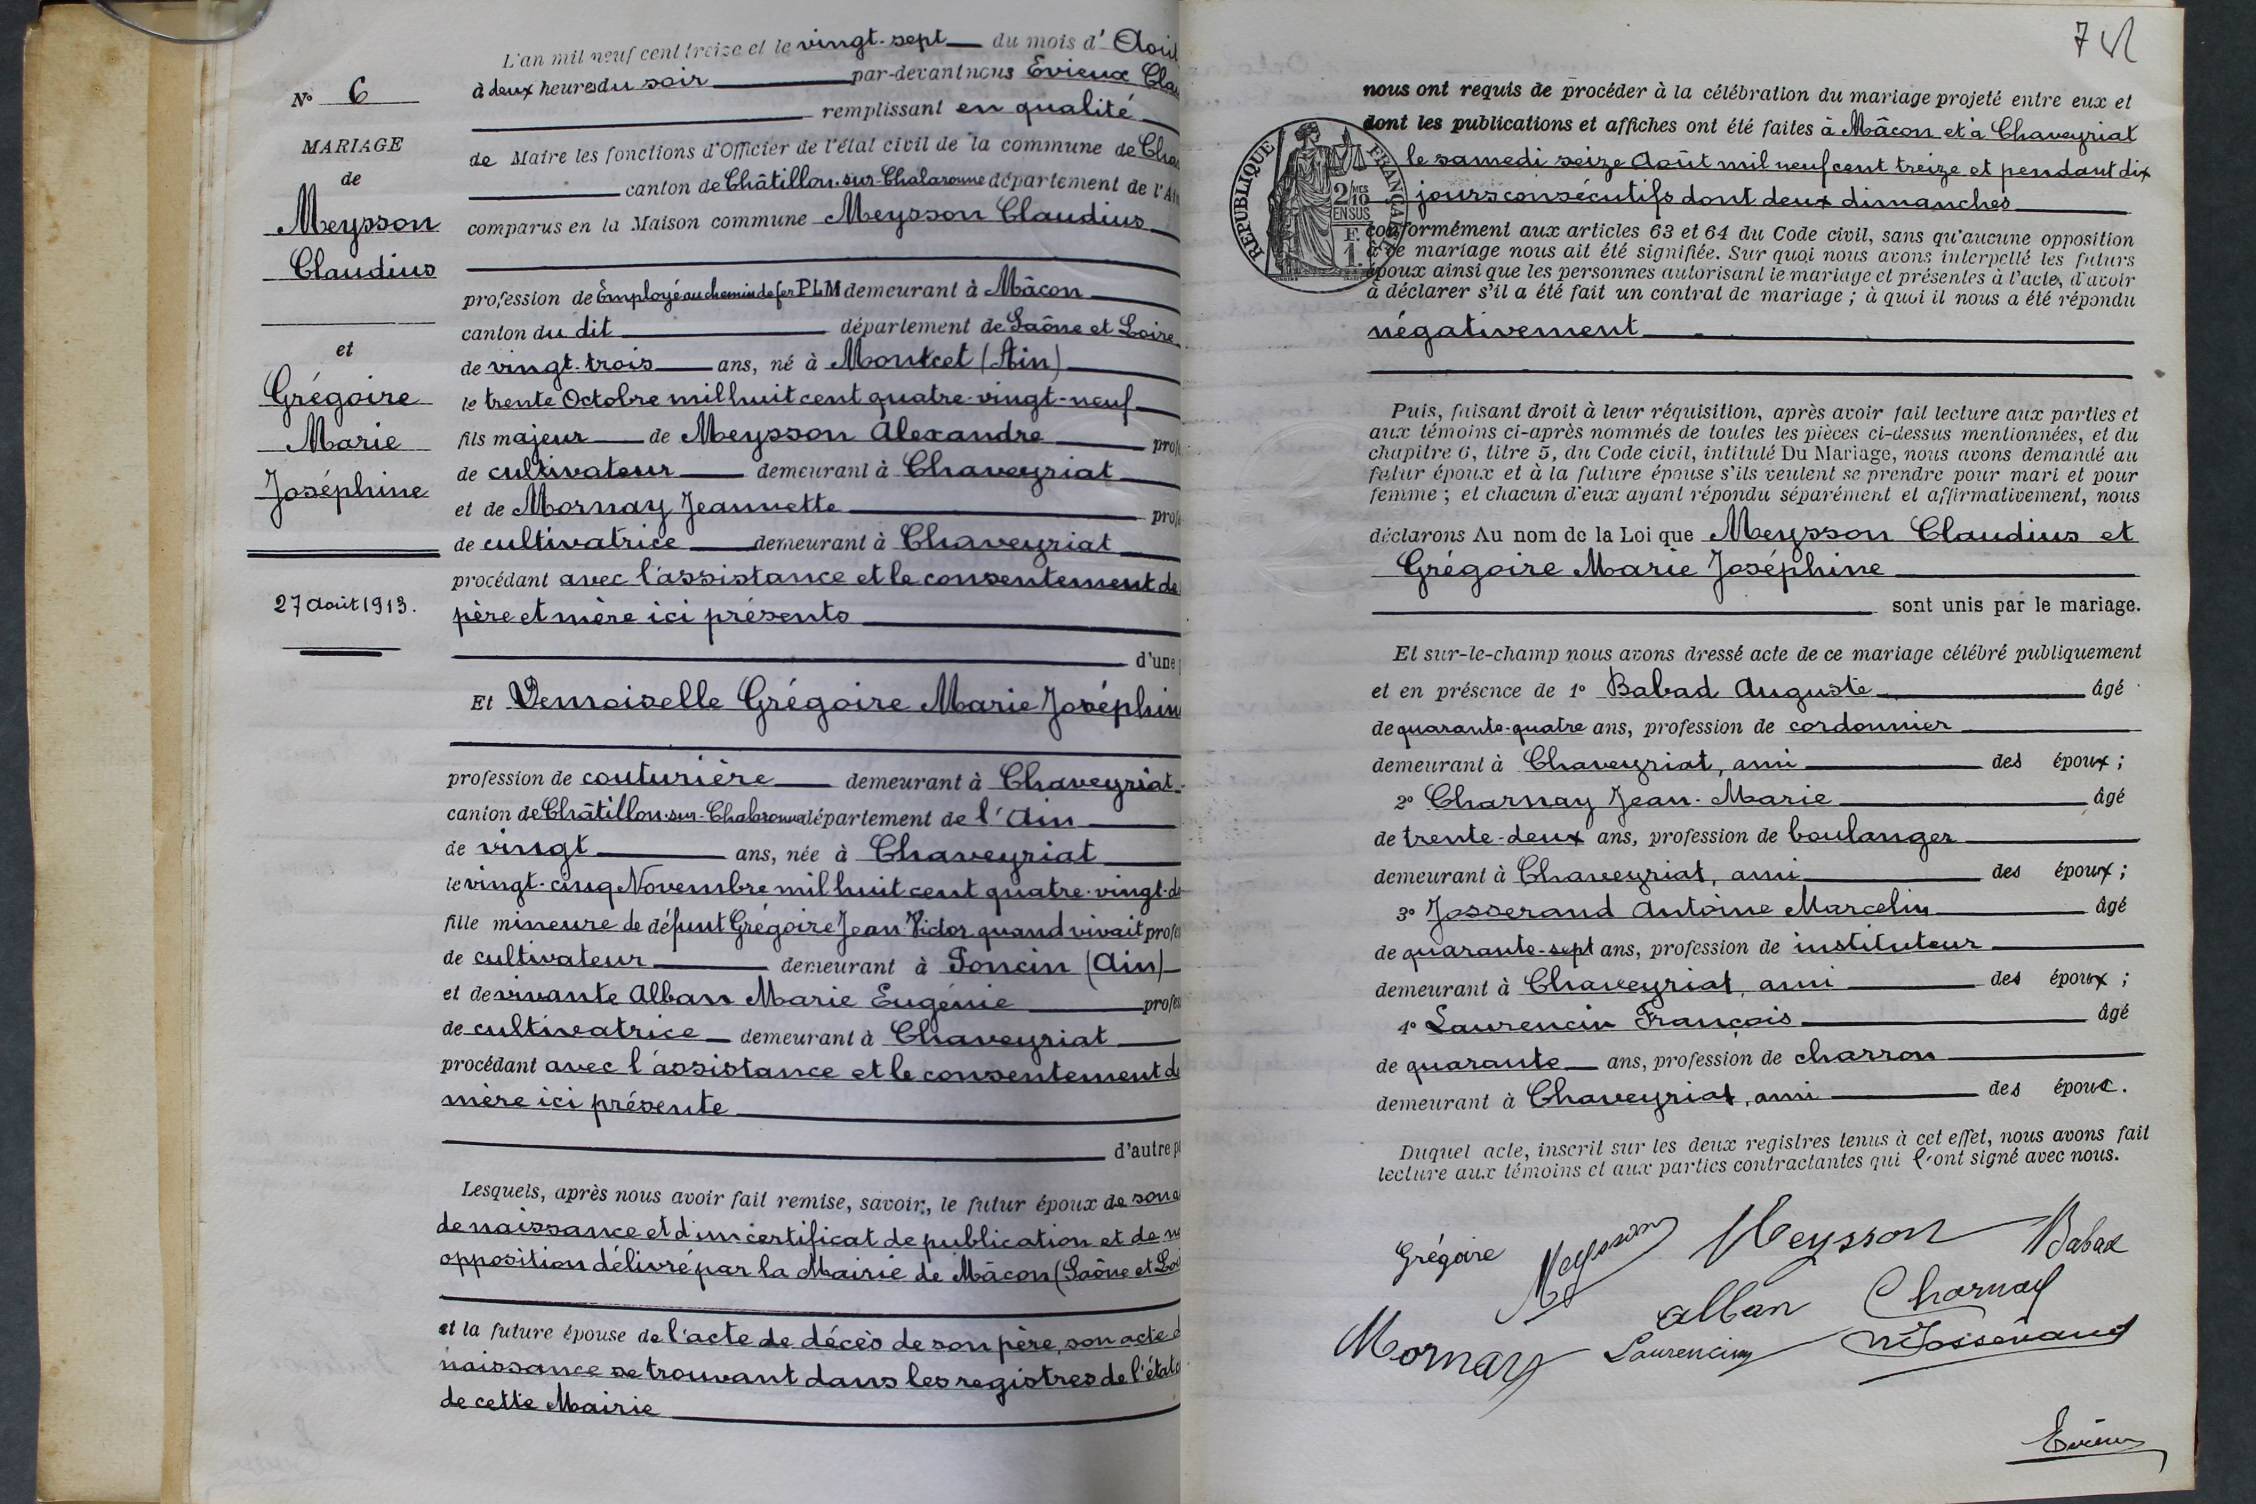 N° 6
MARIAGE
de
Meysson
Claudius
et
Grégoire
Marie
Joséphine
27 Août 1913.
L'an mil neuf cent treize et le vingt-sept du mois d'Août
à deux heures du soir par-devant nous Evieux Clau
remplissant en qualité
de Maire les fonctions d'Officier de l'état civil de la commune de Cha
canton de Châtillon-sur-Chalaronne département de l'Ain
comparus en la Maison commune Meysson Claudius
profession de Employé au chemin de fer PLM demeurant à Mâcon
canton du dit département de Saône et Loire
de vingt-trois ans, né à Montcet (Ain)
le trente Octobre mil huit cent quatre-vingt-neuf
fils majeur de Meysson Alexandre profe
de cultivateur demeurant à Chaveyriat
et de Mornay Jeannette profe
de cultivatrice demeurant à Chaveyriat
procédant avec l'assistance et le consentement de
père et mère ici présents
d'une p
Et Demoiselle Grégoire Marie Joséphine
profession de couturière demeurant à Chaveyriat
canton de Châtillon-sur-Chalaronne département de l'Ain
de vingt ans, née à Chaveyriat
le vingt-cinq Novembre mil huit cent quatre-vingt-d
fille mineure de défunt Grégoire Jean Victor quand vivait profes
de cultivateur demeurant à Poncin (Ain)
et de vivante Alban Marie Eugénie profes
de cultivatrice demeurant à Chaveyriat
procédant avec l'assistance et le consentement de
mère ici présente
d'autre pa
Lesquels, après nous avoir fait remise, savoir, le futur époux de son a
de naissance et d'un certificat de publication et de no
opposition délivré par la Mairie de Mâcon (Saône et Loi
et la future épouse de l'acte de décès de son père, son acte d
naissance se trouvant dans les registres de l'état c
de cette Mairie
7
nous ont requis de procéder à la célébration du mariage projeté entre eux et
dont les publications et affiches ont été faites à Mâcon et à Chaveyriat
le samedi seize Août mil neuf cent treize et pendant dix
jours consécutifs dont deux dimanches
RÉPUBLIQUE FRANÇAISE
2/10 EN SUS
F. 1.
conformément aux articles 63 et 64 du Code civil, sans qu'aucune opposition
à ce mariage nous ait été signifiée. Sur quoi nous avons interpellé les futurs
époux ainsi que les personnes autorisant le mariage et présentes à l'acte, d'avoir
à déclarer s'il a été fait un contrat de mariage ; à quoi il nous a été répondu
négativement
Puis, faisant droit à leur réquisition, après avoir fait lecture aux parties et
aux témoins ci-après nommés de toutes les pièces ci-dessus mentionnées, et du
chapitre 6, titre 5, du Code civil, intitulé Du Mariage, nous avons demandé au
futur époux et à la future épouse s'ils veulent se prendre pour mari et pour
femme ; et chacun d'eux ayant répondu séparément et affirmativement, nous
déclarons Au nom de la Loi que Meysson Claudius et
Grégoire Marie Joséphine
sont unis par le mariage.
Et sur-le-champ nous avons dressé acte de ce mariage célébré publiquement
et en présence de 1° Babad Auguste âgé
de quarante-quatre ans, profession de cordonnier
demeurant à Chaveyriat, ami des époux ;
2° Charnay Jean-Marie âgé
de trente-deux ans, profession de boulanger
demeurant à Chaveyriat, ami des époux ;
3° Josserand Antoine Marcelin âgé
de quarante-sept ans, profession de instituteur
demeurant à Chaveyriat, ami des époux ;
4° Laurencin François âgé
de quarante ans, profession de charron
demeurant à Chaveyriat, ami des époux.
Duquel acte, inscrit sur les deux registres tenus à cet effet, nous avons fait
lecture aux témoins et aux parties contractantes qui l'ont signé avec nous.
Grégoire Meysson Meysson Babad
Mornay Alban Charnay
Laurencin Josserand
Evieux